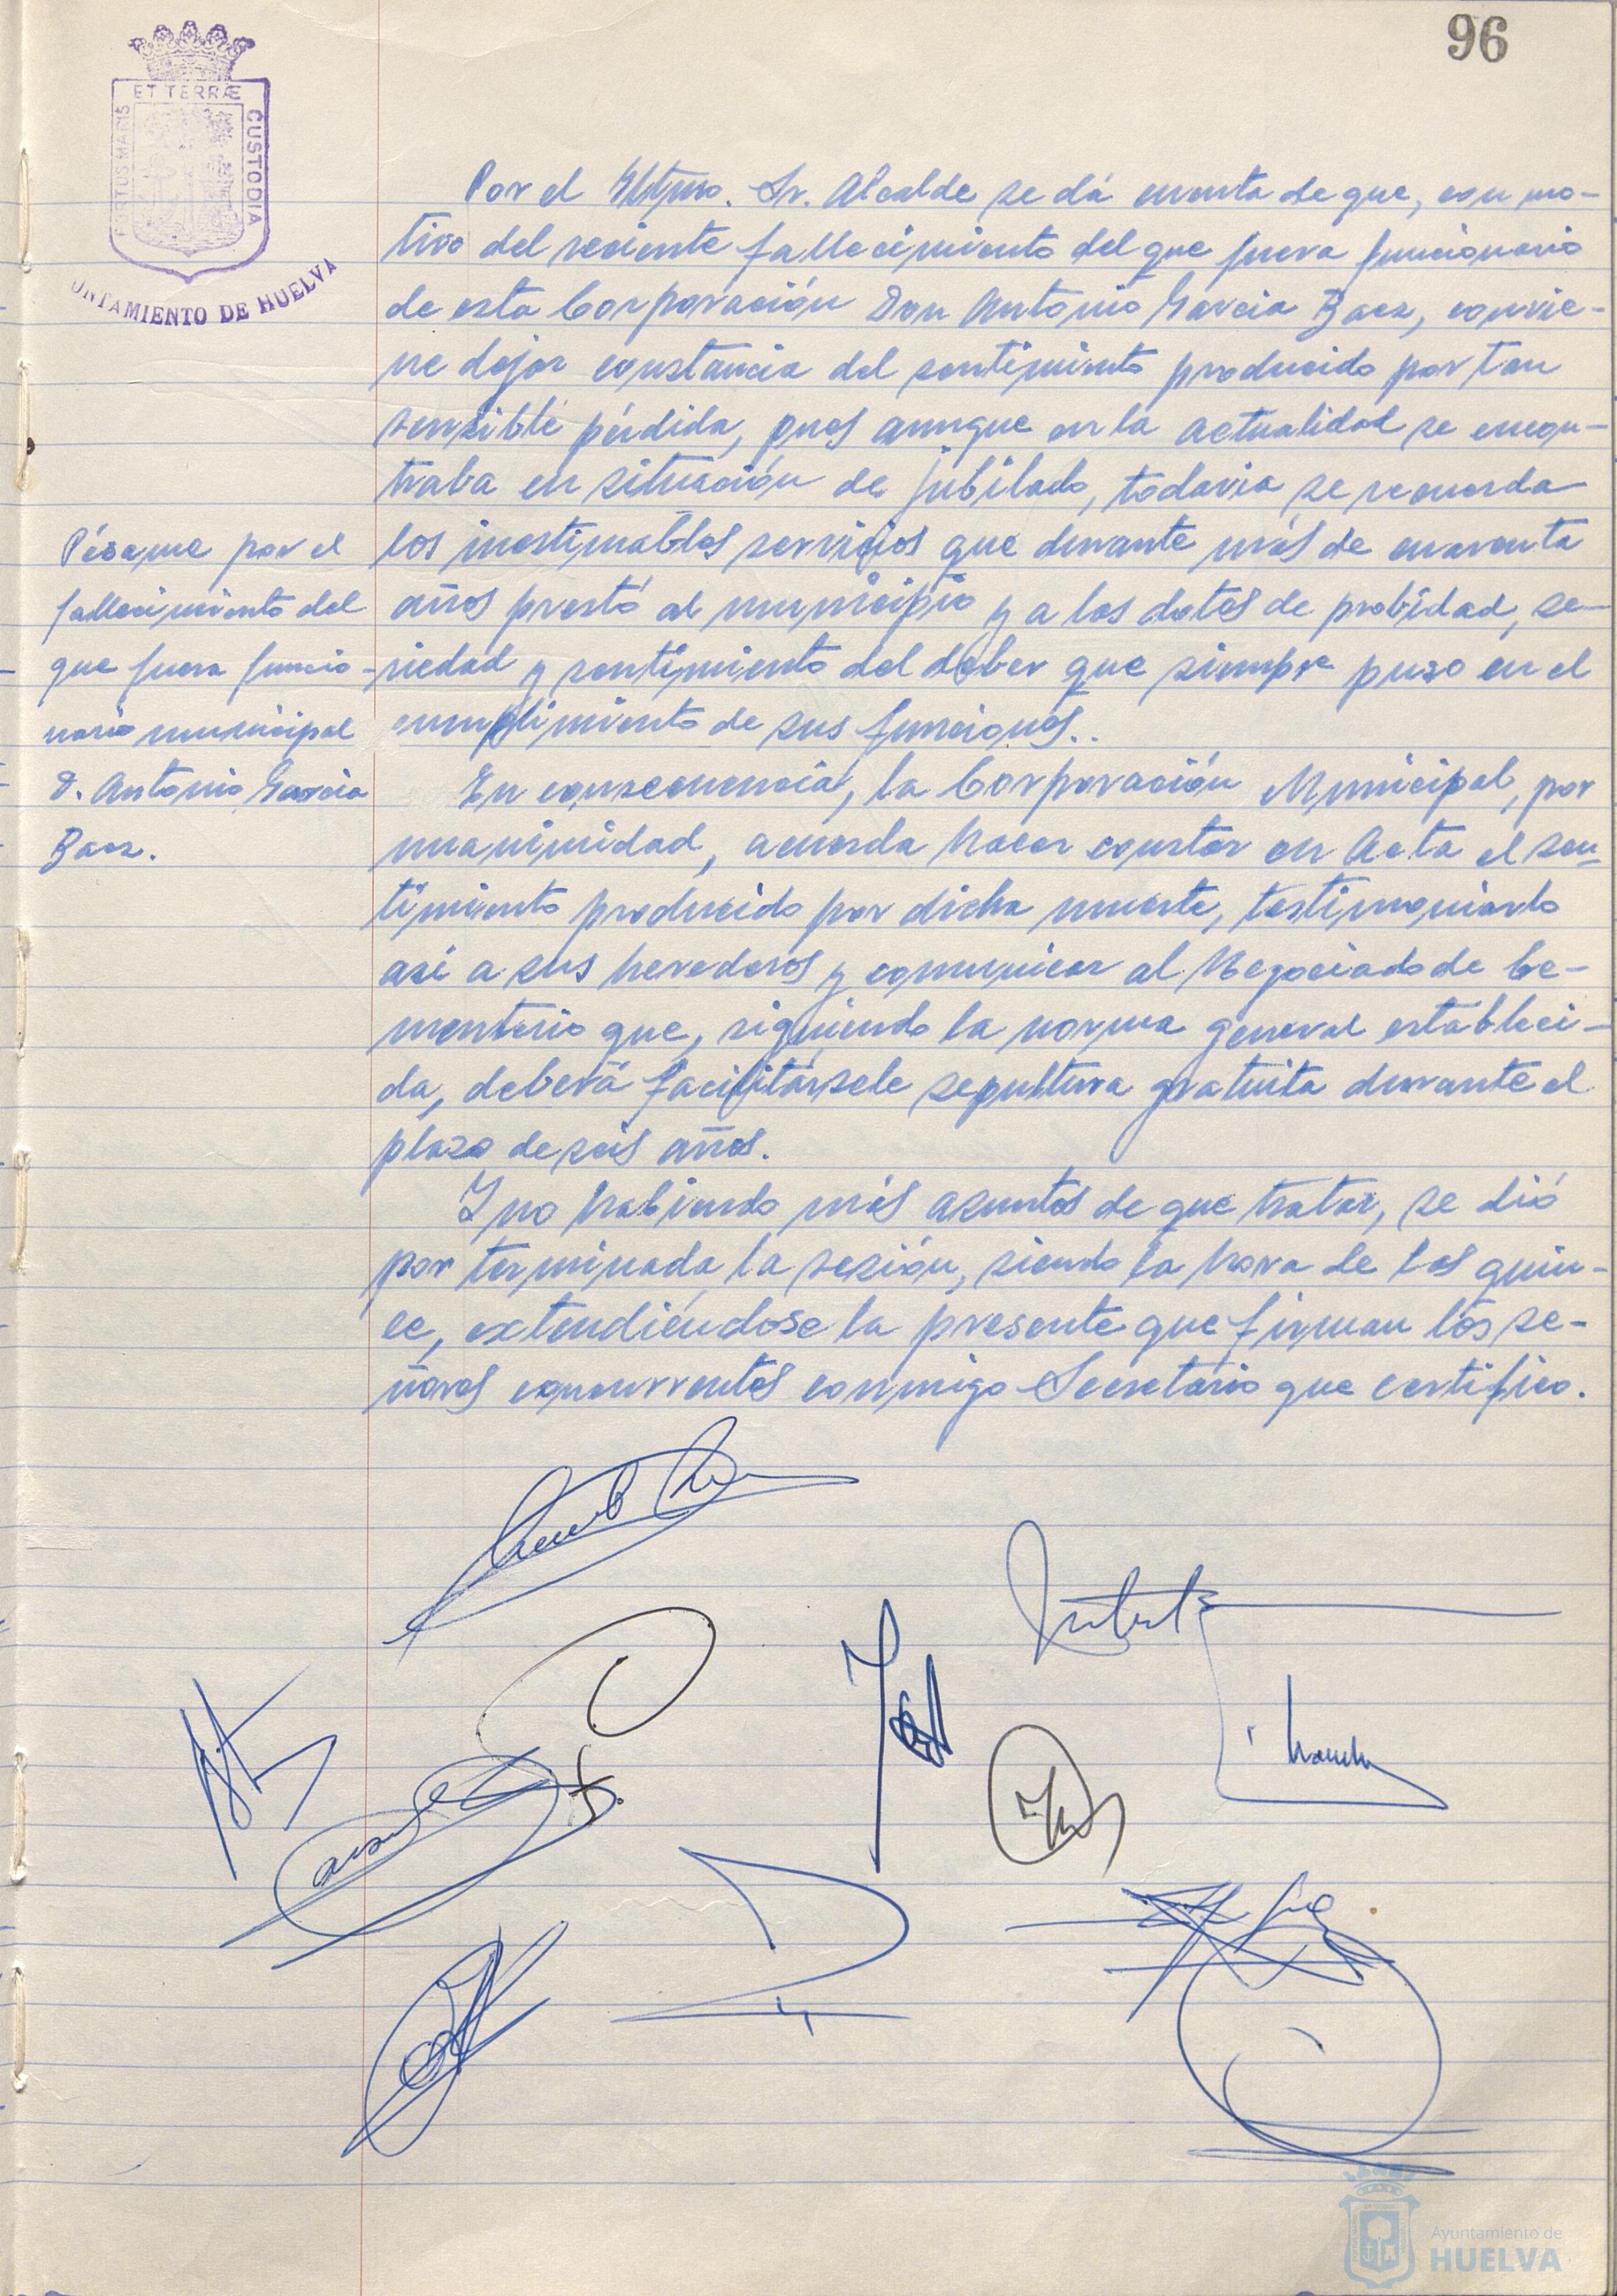 96
ET TERRÆ
PORTUS MARIS
CUSTODIA
UNTAMIENTO DE HUELVA
Por el Iltmo. Sr. Alcalde se dá cuenta de que, con mo-
tivo del reciente fallecimiento del que fuera funcionario
de esta Corporación Don Antonio Garcia Baez, convie-
ne dejar constancia del sentimiento producido por tan
sensible pérdida, pues aunque en la actualidad se encon-
traba en situación de jubilado, todavia se recuerda
los inestimables servicios que durante más de cuarenta
años prestó al municipio y a las dotes de probidad, se-
riedad y sentimiento del deber que siempre puso en el
cumplimiento de sus funciones..
Pésame por el
fallecimiento del
que fuera funcio-
nario municipal
D. Antonio Garcia
Baez.
En consecuencia, la Corporación Municipal, por
unanimidad, acuerda hacer constar en Acta el sen-
timiento producido por dicha muerte, testimoniarlo
así a sus herederos y comunicar al Negociado de Ce-
menterio que, siguiendo la norma general estableci-
da, deberá facilitársele sepultura gratuita durante el
plazo de seis años.
Y no habiendo más asuntos de que tratar, se dió
por terminada la sesión, siendo la hora de las quin-
ce, extendiéndose la presente que firman los se-
ñores concurrentes conmigo Secretario que certifico.
Ayuntamiento de
HUELVA